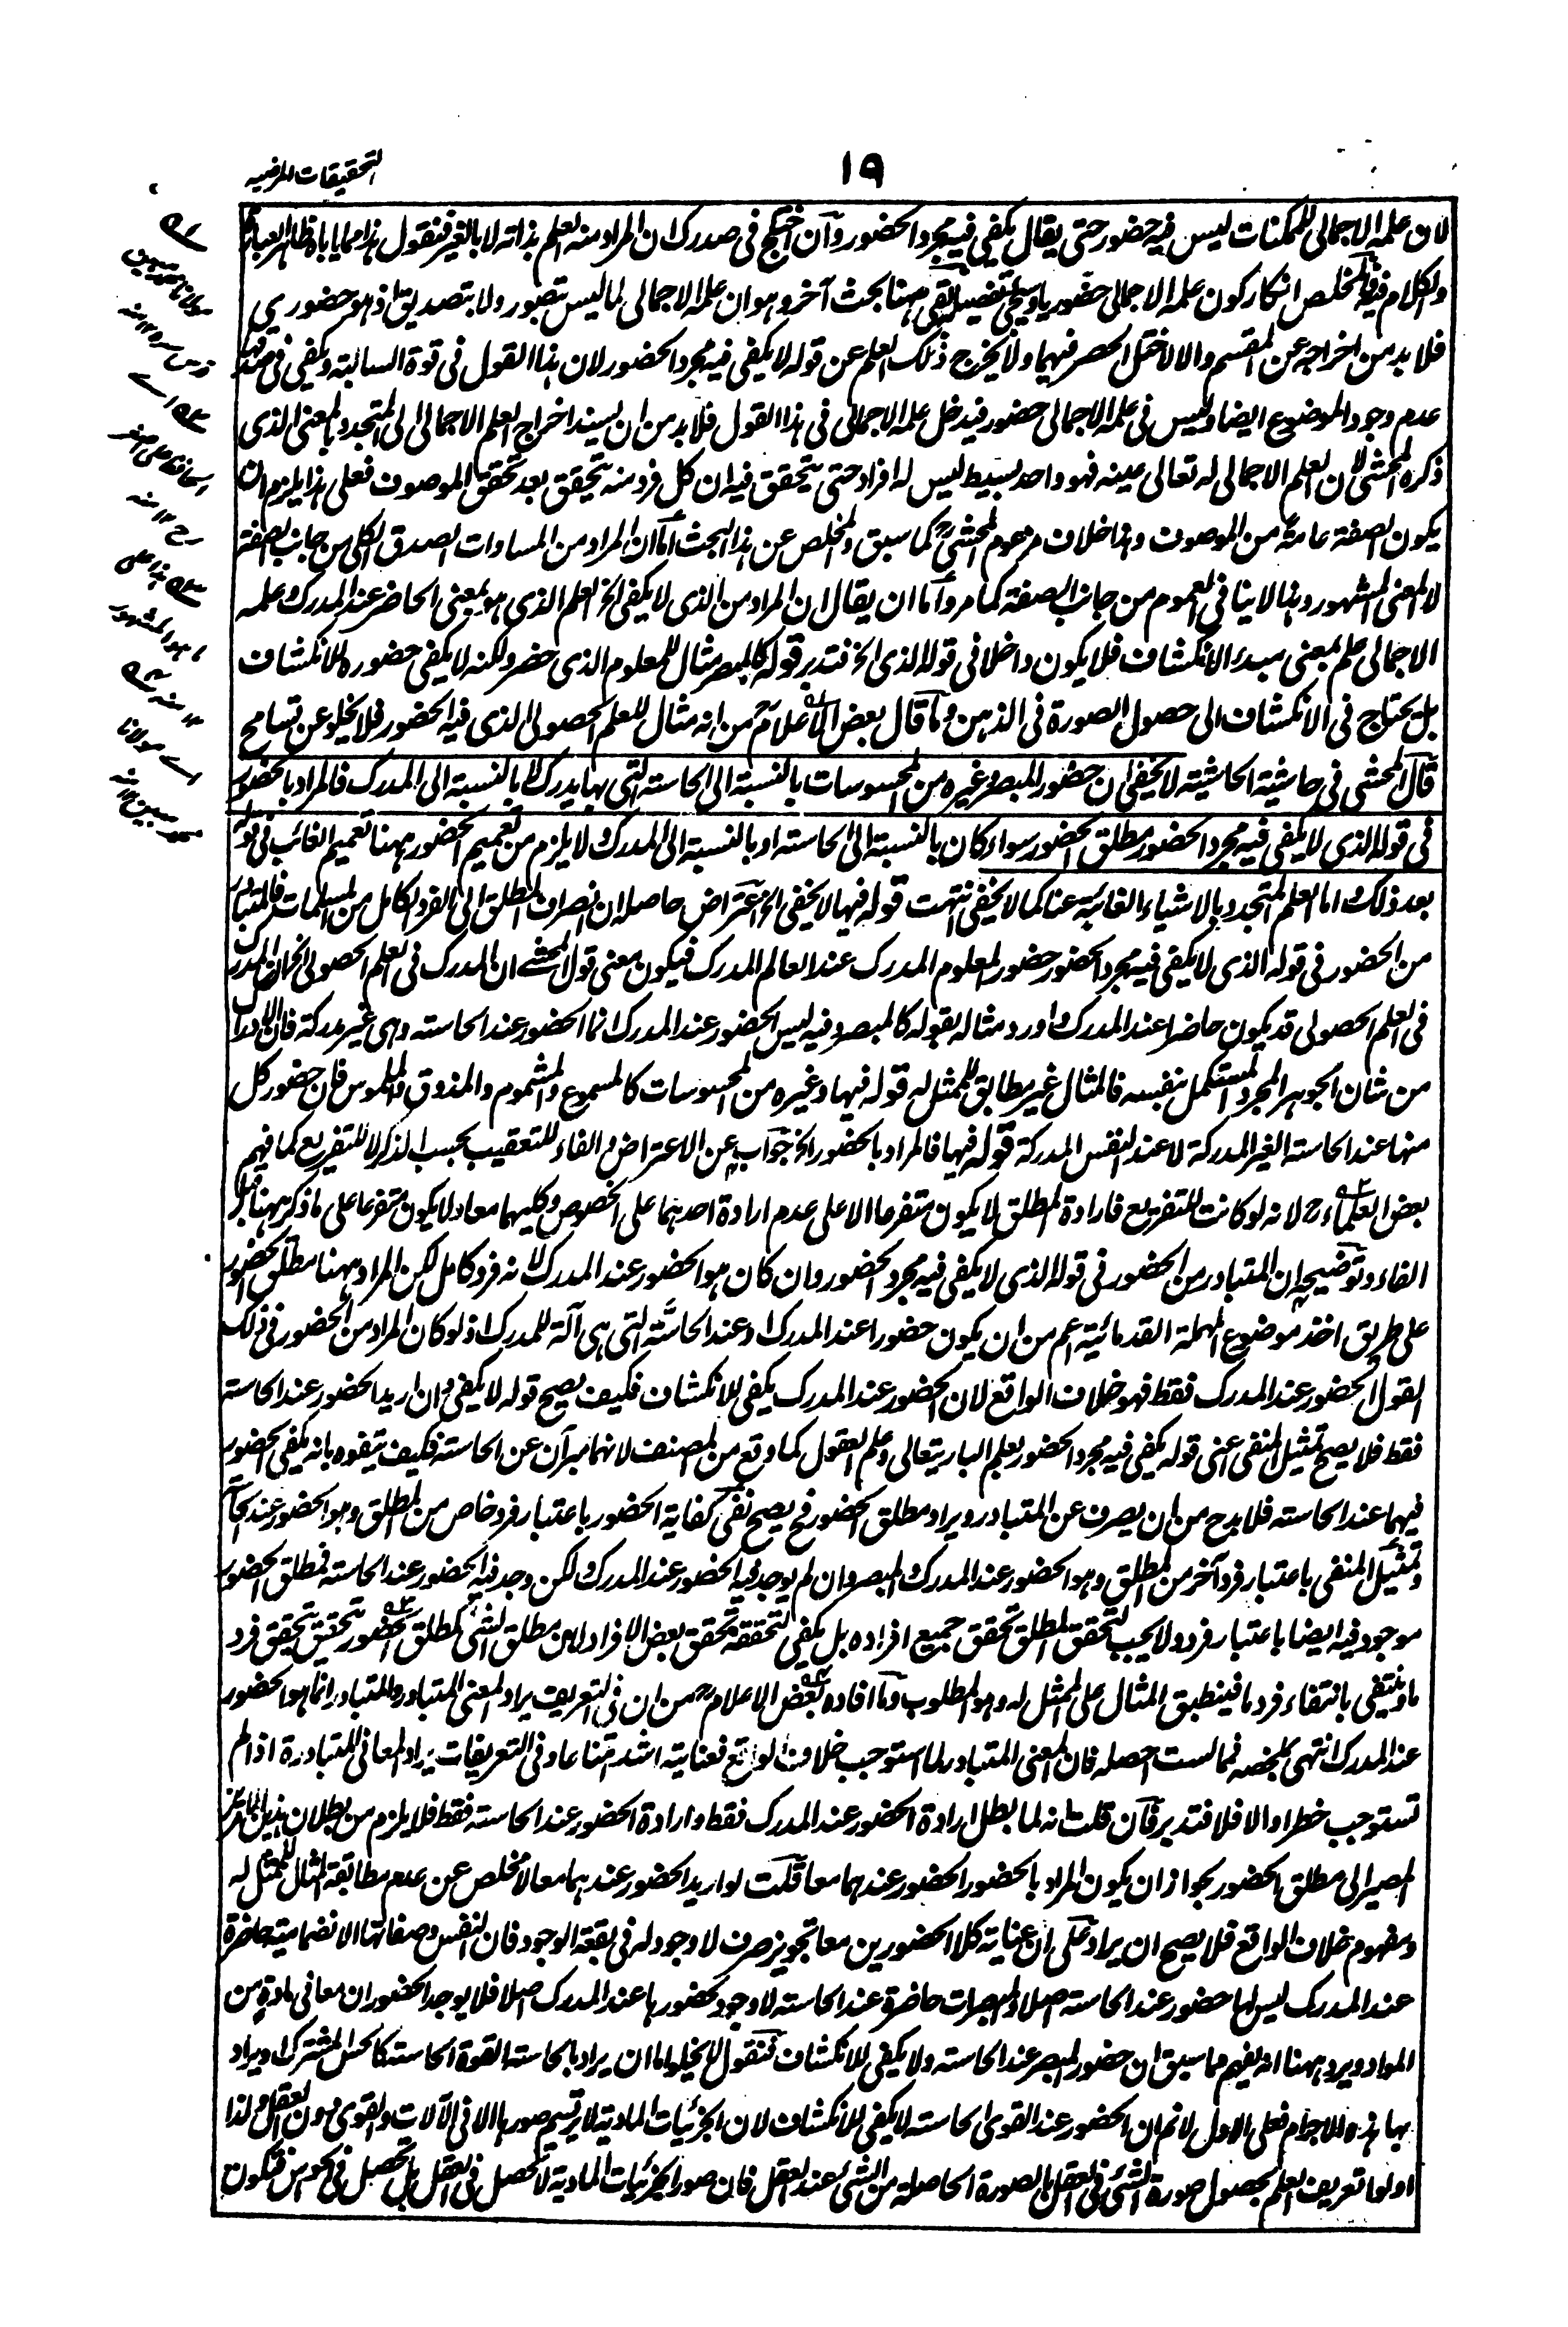 التحقيقات المرضيه
١٩
لان علمه الاجمالى للممكنات ليس فيه حضور حتى يقال يكفى فيه مجرد الحضور وآن اختلج فى صدرك ان المراد منه العلم بذاته لا بالغير فنقول هذا مما ياباه ظاهر العبارة
والكلام فيه المخلص انكار كون علمه الاجمالى حضوريا وسيجئ تفصيله بقى ههنا بحث آخر وهو ان علمه الاجمالى لما ليس بتصور ولا بتصديق اذ هو حضورى
فلا بد من اخراجه عن المقسم والا لاختل الحصر فيهما ولا يخرج ذلك العلم عن قوله لا يكفى فيه مجرد الحضور لان هذا القول فى قوة السالبة ويكفى فى صدقها
عدم وجود الموضوع ايضا وليس فى علمه الاجمالى حضور فيدخل علمه الاجمالى فى هذا القول فلا بد من ان يسند اخراج العلم الاجمالى الى المتجدد بالمعنى الذى
ذكره المحشى لان العلم الاجمالى له تعالى عينه فهو واحد بسيط ليس له افراد حتى يتحقق فيه ان كل فرد منه يتحقق بعد تحقق الموصوف فعلى هذا يلزم ان
يكون الصفة عامة من الموصوف وهذا خلاف مزعوم المحشى كما سبق والمخلص عن هذا البحث اما ان المراد من المساوات الصدق الكلى من جانب الصفة
لا المعنى المشهور وهذا لا ينافى العموم من جانب الصفة كما مر واما ان يقال ان المراد من الذى لا يكفى الخ العلم الذى هو بمعنى الحاضر عند المدرك وعلمه
الاجمالى علم بمعنى مبدء الانكشاف فلا يكون داخلا فى قوله الذى الخ فتدبر قوله كالمبصر مثال للمعلوم الذى حضر ولكنه لا يكفى حضوره للانكشاف
بل يحتاج فى الانكشاف الى حصول الصورة فى الذهن وما قال بعض الاعلام من انه مثال للعلم الحصولى الذى فيه الحضور فلا يخلو عن تسامح
قال المحشى فى حاشية الحاشية لا يخفى ان حضور المبصر وغيره من المحسوسات بالنسبة الى الحاسة التى بها يدرك لا بالنسبة الى المدرك فالمراد بالحضور
فى قوله الذى لا يكفى فيه مجرد الحضور مطلق الحضور سواء كان بالنسبة الى الحاسة او بالنسبة الى المدرك ولا يلزم من تعميم الحضور ههنا تعميم الغائب فى قوله
بعد ذلك واما العلم المتجدد بالاشياء الغائبة عنا كما لا يخفى انتهت قوله فيها لا يخفى الخ اعتراض حاصله ان انصراف المطلق الى الفرد الكامل من المسلمات فالمتبادر
من الحضور فى قوله الذى لا يكفى فيه مجرد الحضور حضور المعلوم المدرك عند العالم المدرك فيكون معنى قول المحشے ان المدرك فى العلم الحصولى الخ ان المدرك
فى العلم الحصولى قد يكون حاضرا عند المدرك واورد مثاله بقوله كالمبصر وفيه ليس الحضور عند المدرك انما الحضور عند الحاسة وهى غير مدركة فان الادراك
من شان الجوهر المجرد المستكمل بنفسه فالمثال غير مطابق للممثل له قوله فيها وغيره من المحسوسات كالمسموع والمشموم والمذوق والملموس فان حضور كل
منها عند الحاسة الغير المدركة لا عند النفس المدركة قوله فيها فالمراد بالحضور الخ جواب عن الاعتراض والفاء للتعقيب بحسب الذكر لا للتفريع كما فهم
بعض العلماء رح لانه لو كانت للتفريع فارادة المطلق لا يكون متفرعا الا على عدم ارادة احدهما على الخصوص وكليهما معا ولا يكون متفرعا على ما ذكر ههنا قبل
الفاء وتوضيحه ان المتبادر من الحضور فى قوله الذى لا يكفى فيه مجرد الحضور وان كان هو الحضور عند المدرك لانه فرد كامل لكن المراد ههنا مطلق الحضور
على طريق اخذ موضوع المهملة القدمائية اعم من ان يكون حضورا عند المدرك او عند الحاسة التى هى آلة للمدرك اذ لو كان المراد من الحضور فى ذلك
القول الحضور عند المدرك فقط فهو خلاف الواقع لان الحضور عند المدرك يكفى للانكشاف فكيف يصح قوله لا يكفى وان اريد الحضور عند الحاسة
فقط فلا يصح تمثيل المنفى اعنى قوله يكفى فيه مجرد الحضور بعلم البارى تعالى وعلم العقول كما وقع من المصنف لانهما مبرآن عن الحاسة فكيف يتفوه بانه يكفى الحضور
فيهما عند الحاسة فلا بد ح من ان يصرف عن المتبادر ويراد مطلق الحضور فح يصح نفى كفاية الحضور باعتبار فرد خاص من المطلق وهو الحضور عند الحاسة
وتمثيل المنفى باعتبار فرد آخر من المطلق وهو الحضور عند المدرك والمبصر وان لم يوجد فيه الحضور عند المدرك لكن وجد فيه الحضور عند الحاسة فمطلق الحضور
موجود فيه ايضا باعتبار فرد ولا يجب لتحقق المطلق تحقق جميع افراده بل يكفى لتحققه تحقق بعض الافراد لان مطلق الشئ كمطلق الحضور يتحقق بتحقق فرد
ما وينتفى بانتفاء فرد ما فينطبق المثال على الممثل له وهو المطلوب وما افاده بعض الاعلام من ان فى التعريف يراد المعنى المتبادر والمتبادر انما هو الحضور
عند المدرك انتهى ملخصه فما لست احصله فان المعنى المتبادر لما استوجب خلاف الواقع فعنايته اشد امتناعا وفى التعريفات يراد المعانى المتبادرة اذا لم
تستوجب خطرا والا فلا فتدبر فان قلت انه لما بطل ارادة الحضور عند المدرك فقط وارادة الحضور عند الحاسة فقط فلا يلزم من بطلان هذين
المصير الى مطلق الحضور بجواز ان يكون المراد بالحضور الحضور عندهما معا قلت لو اريد الحضور عندهما معا لا مخلص عن عدم مطابقة المثال للممثل له
ومفهوم خلاف الواقع فلا يصح ان يراد على ان عناية كلا الحضورين معا تجويز صرف لا وجود له فى بقعة الوجود فان النفس وصفاتها الانضمامية حاضرة
عند المدرك ليس لها حضور عند الحاسة اصلا والمبصرات حاضرة عند الحاسة لا وجود لحضورها عند المدرك اصلا فلا يوجد الحضوران معا فى مادة من
المواد ويرد ههنا انه يفهم مما سبق ان حضور المبصر عند الحاسة ولا يكفى للانكشاف فنقول لا يخلو اما ان يراد بالحاسة القوة الحاسة كالحس المشترك او يراد
بها هذه الاجرام فعلى الاول لا نم ان الحضور عند القوى الحاسة لا يكفى للانكشاف لان الجزئيات المادية لا ترتسم صورها الا فى الآلات والقوى دون العقل ولذا
اولوا تعريف العلم بحصول صورة الشئ فى العقل بالصورة الحاصلة من الشئ عند العقل فان صور الجزئيات المادية لا تحصل فى العقل بل تحصل فى الحواس فتكون